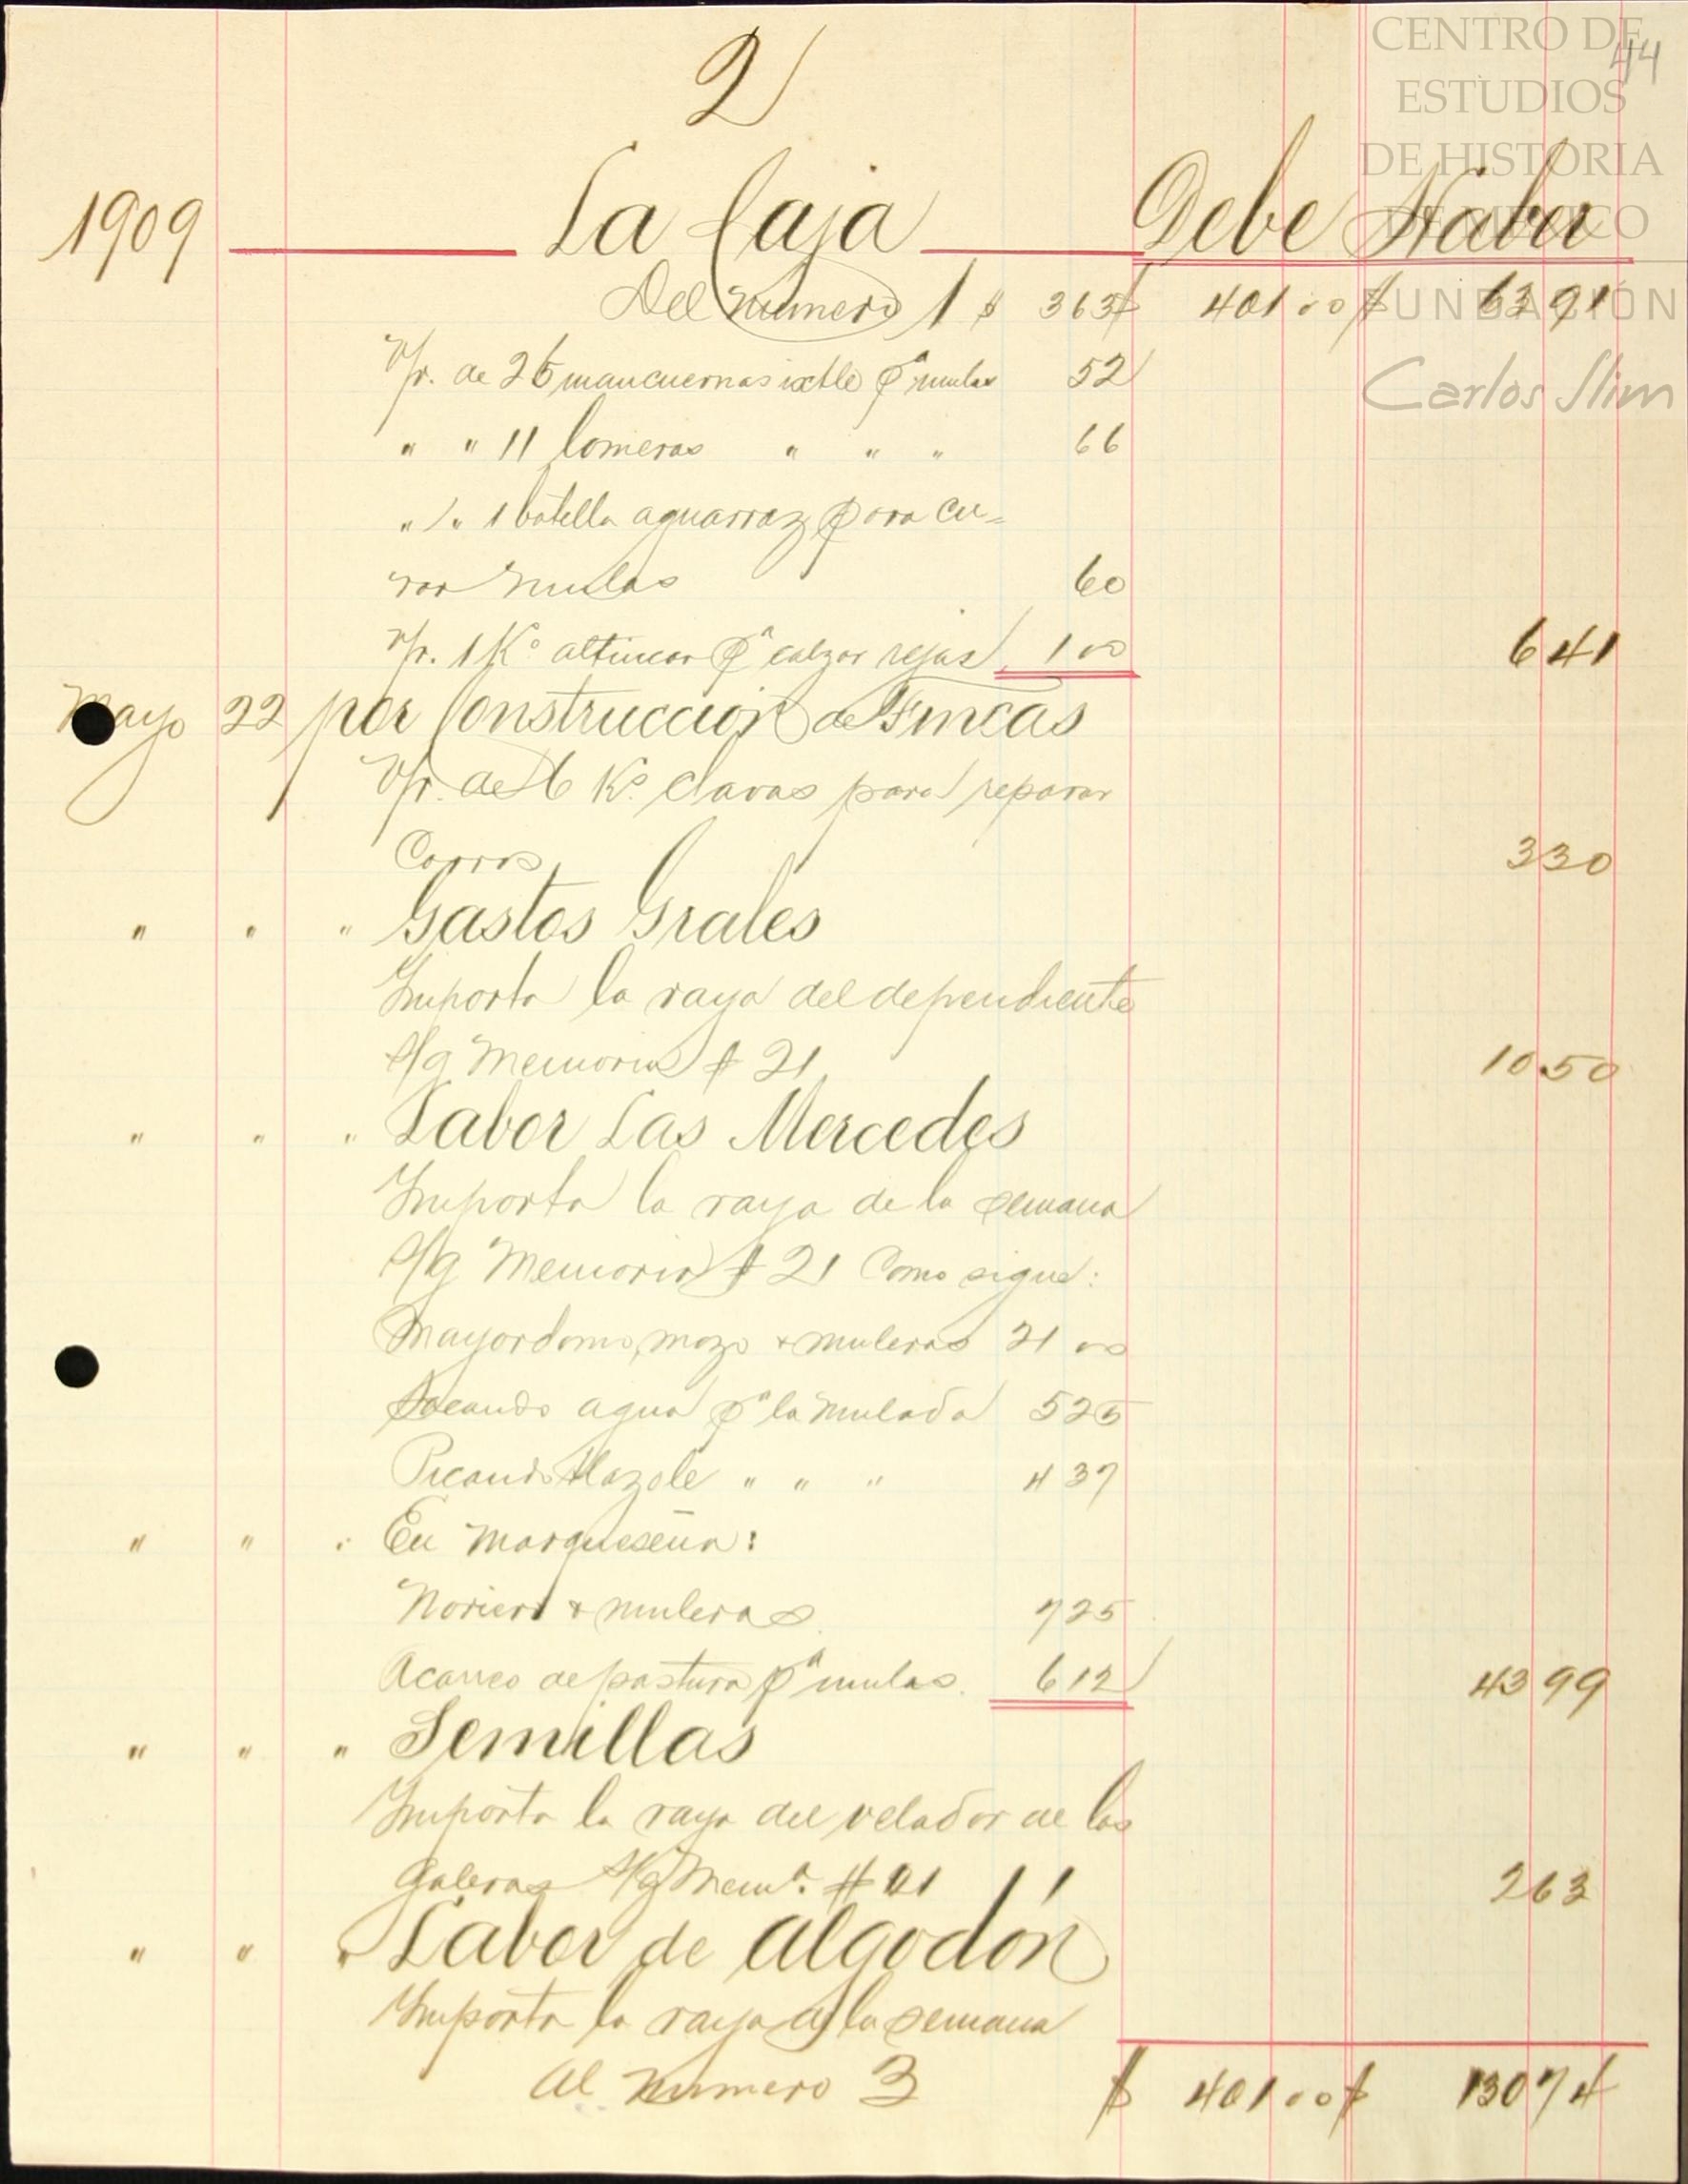 CENTRO DE
ESTUDIOS
DE HISTORIA
DE MÉXICO
FUNDACIÓN
Carlos Slim
44
2
1909 La Caja Debe Haber
Del numero 1 $ 363 $ 401 00 $ 63 91
Vr. de 26 mancuernas ixtle pª mulas 52
" " 11 lomeras " " " 66
" " 1 botella aguarraz para cu=
rar mulas 60
Vr. 1 Kº altincar pª calzar rejas 1 00 6 41
Mayo 22 por Construccion de Fincas
Vr. de 6 Ks. clavos para reparar
Carros 3 30
" " " Gastos Grales
Importa la raya del dependiente
S/g Memoria # 21 10 50
" " " Labor Las Mercedes
Importa la raya de la semana
S/g Memoria # 21 Como sigue:
Mayordomo, mozo & muleros 21 00
Sacando agua pª la mulada 5 25
Picando tlazole " " " 4 37
" " " En Marqueseña:
Noriero & muleros 7 25
Acarreo de pastura pª mulas. 6 12 43 99
" " " Semillas
Importa la raya del velador de las
Galeras S/g Memª. # 21 2 63
" " " Labor de Algodón
Importa la raya de la semana
Al numero 3 $ 401 00 $ 130 74